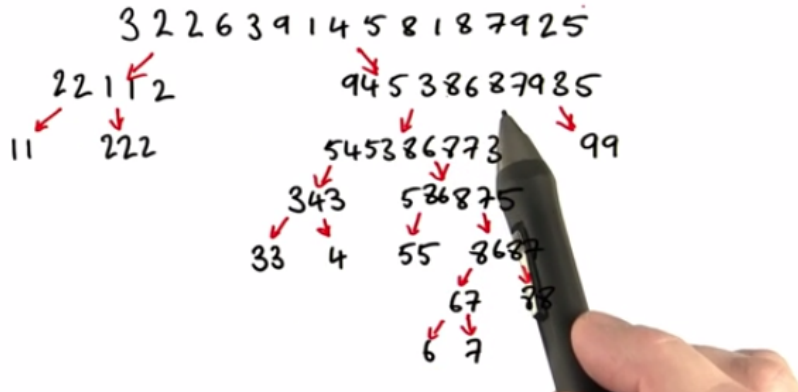 3 2 2 6 3 9 1 4 5 8 1 8 7 9 2 5
2 2 1 1 2 9 4 5 3 8 6 8 7 9 3 5
11 222 545386873 99
343 586875
33 4 55 8687
67 88
6 7